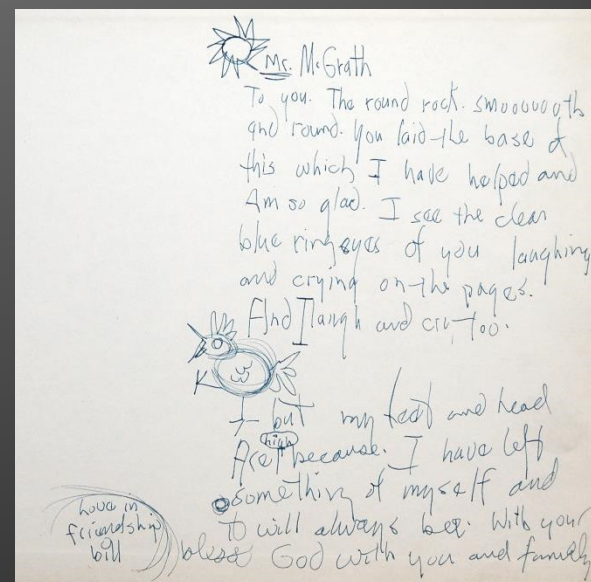 Mr. McGrath
To you. The round rock. smooouuuth
and round. You laid the base of
this which I have helped and
Am so glad. I see the clear
blue ring eyes of you laughing
and crying on the pages.
And I laugh and cry too.
but my feet and head
Are high because. I have left
something of myself and
To will always bee. With your
bless God with you and family
Love in
friendship
bill